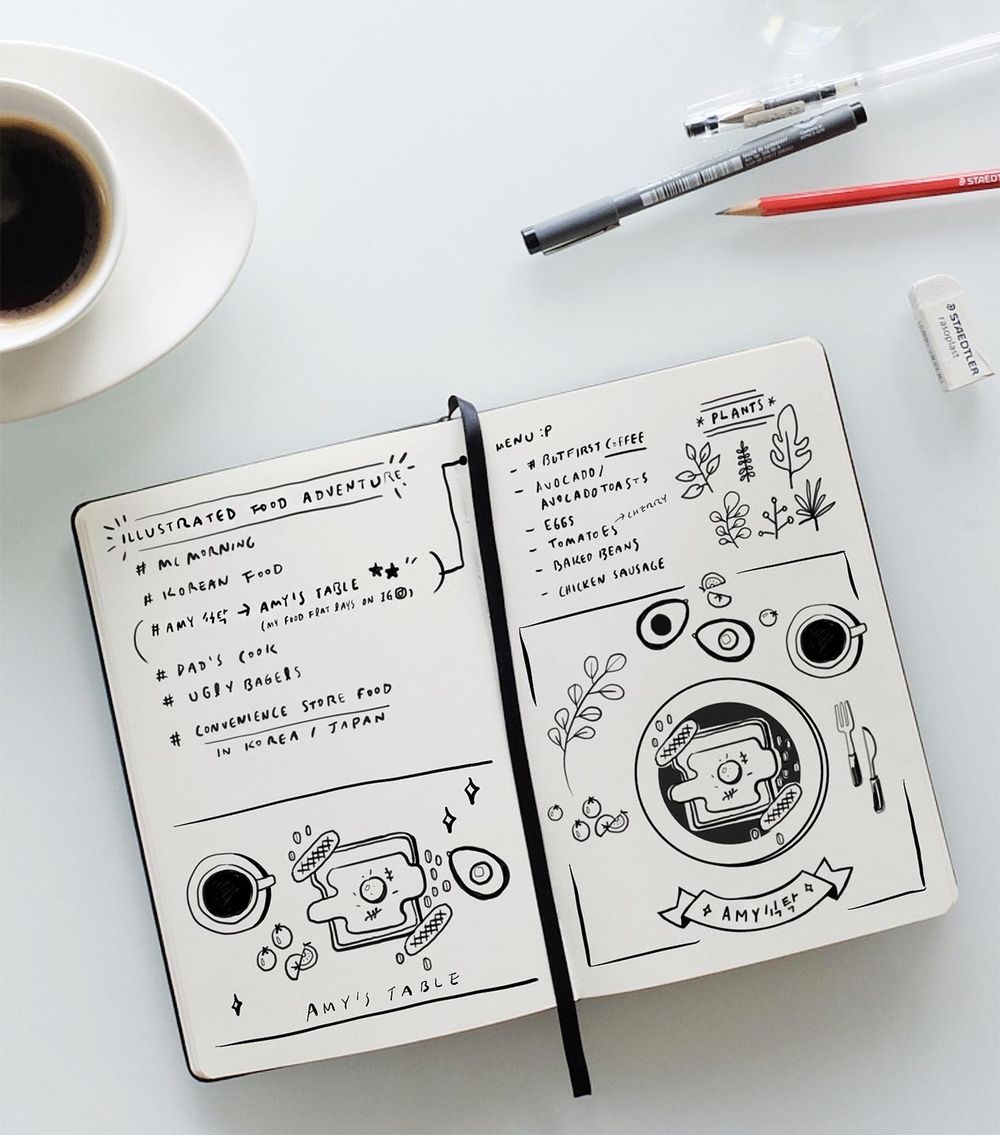 STAEDTLER
rasoplast
ILLUSTRATED FOOD ADVENTURE
# MC MORNING
# KOREAN FOOD
# AMY 식탁 → AMY'S TABLE ★★
(MY FOOD FLAT LAYS ON IG)
# DAD'S COOK
# UGLY BAGELS
# CONVENIENCE STORE FOOD
IN KOREA / JAPAN
AMY'S TABLE
MENU :P
- # BUTFIRSTCOFFEE
- AVOCADO/
AVOCADO TOASTS
- EGGS
- TOMATOES → CHERRY
- BAKED BEANS
- CHICKEN SAUSAGE
* PLANTS *
AMY식탁